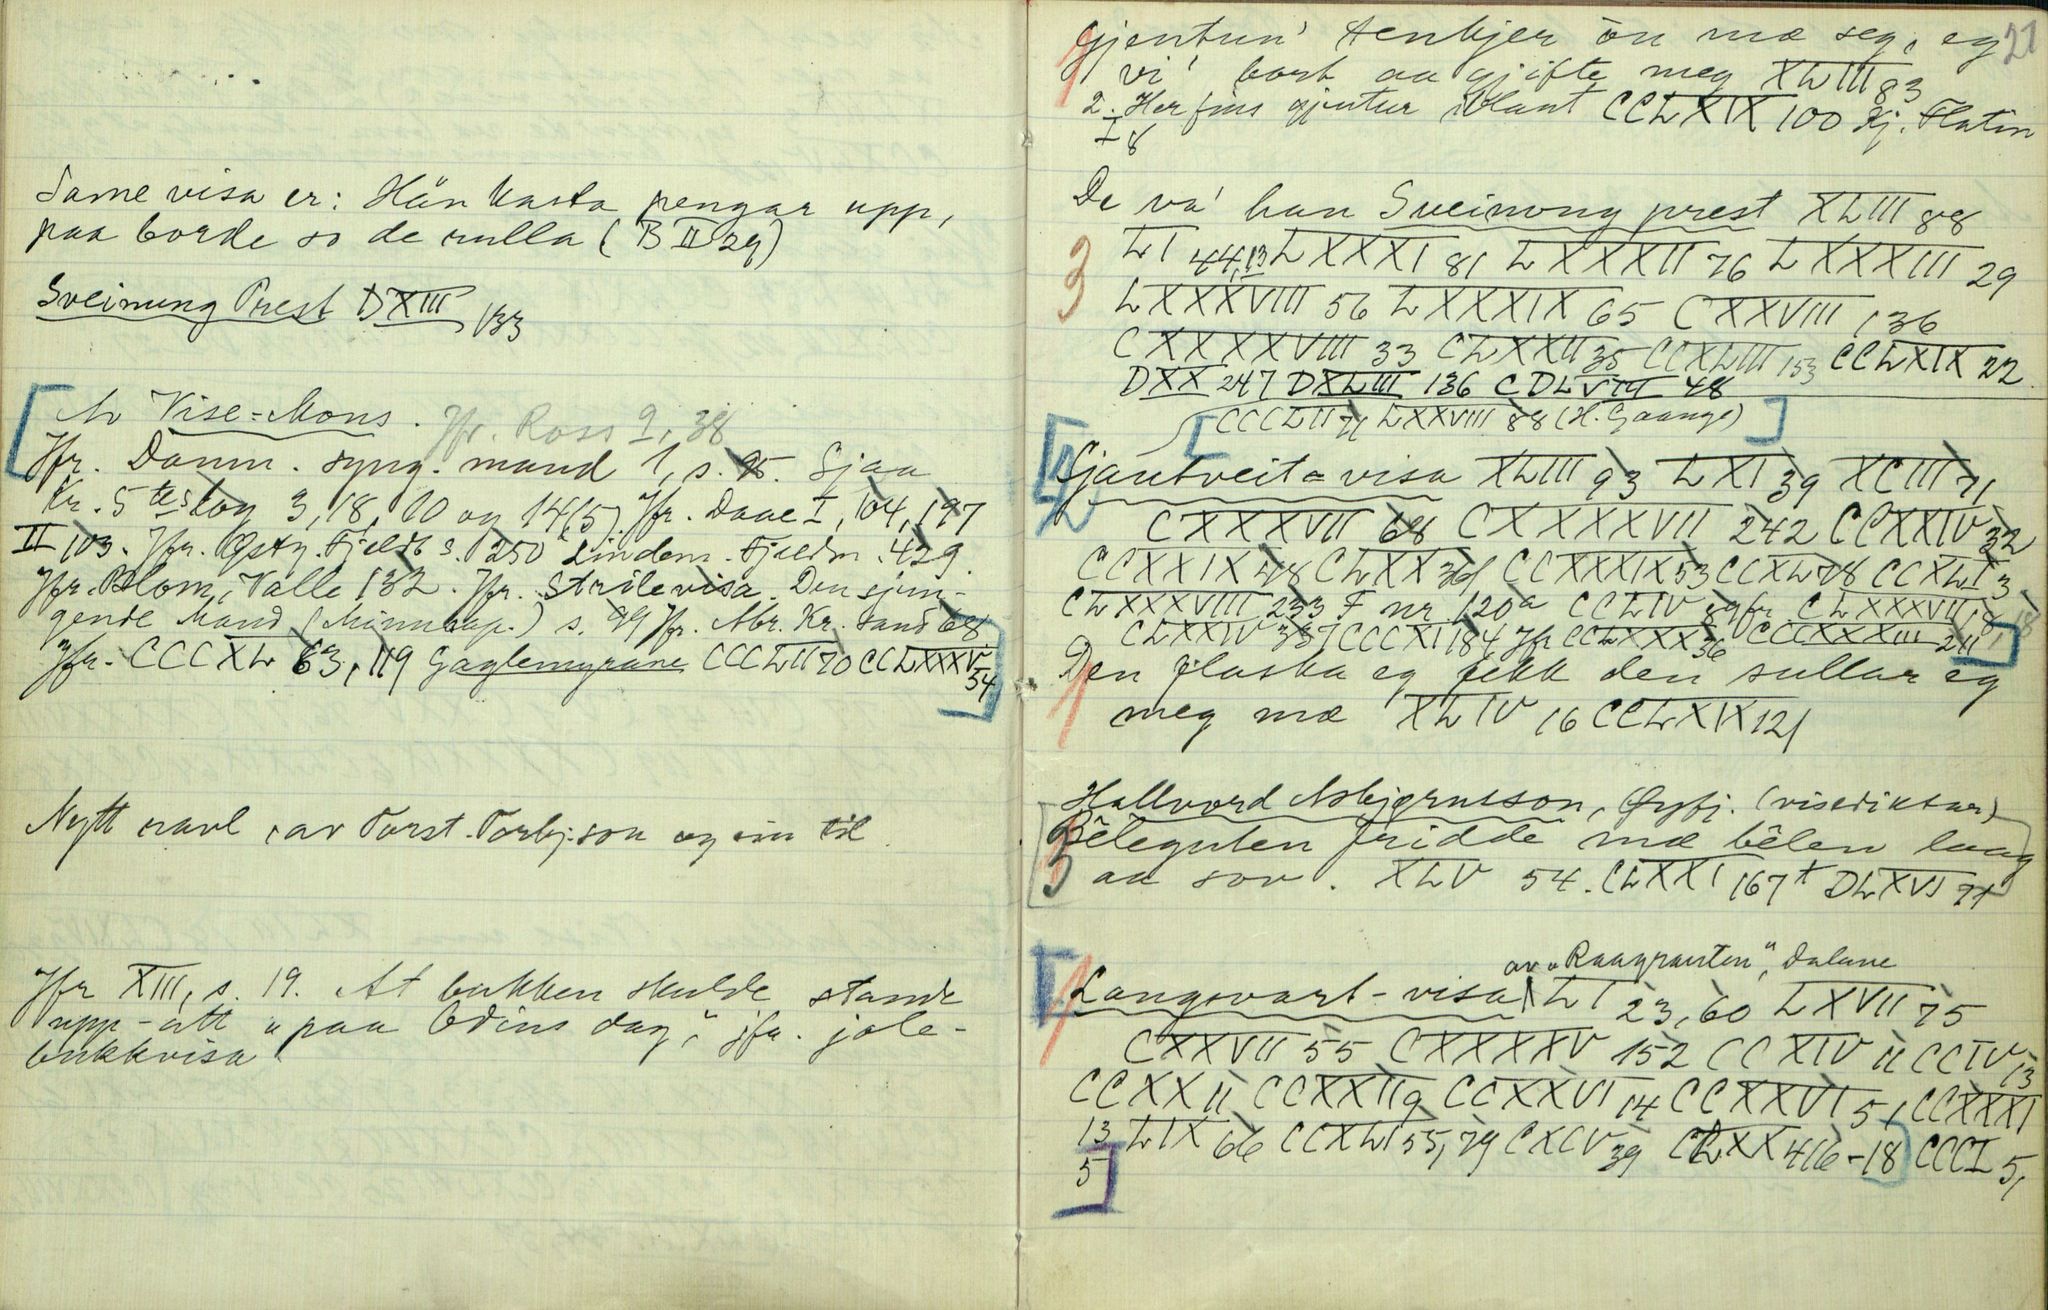 Same visa er: Hån kasta pengar upp,
paa borde so de rulla (B II 29)
Sveinung Prest DXIII 133
Av Vise-Mons. Jfr. Ross 9, 38
Jfr. Danm. syng. mand 1, s. 95. Sjaa
Kr. 5tes log 3, 18, 10 og 14(5). Jfr. Daae I, 104, 197
II 103. Jfr. Østg. Fjeldb s. 250 Lindem. Fjeldm. 429.
Jfr. Blom, Valle 132. Jfr. Strilevisa. Den sjun-
gende Mand (Minneap.) s. 99 Jfr. Abr. Kr. sand 68
Jfr. CCCXL 63, 119 Gaglemyrane CCCLII 70 CCLXXXV 54
Nytt navl, av Torst. Torbj:son og ein til.
Jfr XIII, s. 19. At bukken skulde stande
upp-att "paa Odins dag", jfr. jole-
bukkvisa
21
Gjentun' tenkjer ôn mæ seg, eg
1 vi' bort aa gjifte meg XLIII 83
2. Her fins gjentur blant CCLXIX 100 Kj. Flatin
I 8
De va' han Sveinung prest XLIII 88
3 LI 44,13 LXXXI 81 LXXXII 76 LXXXIII 29
LXXXVIII 56 LXXXIX 65 CXXVIII 136
CXXXXVIII 33 CLXXII 35 CCXLIII 153 CCLXIX 22
DXX 247 DXLIII 136 CDLVII 48
CCCLII 71 LXXVIII 88 (H. Gaange)
Gjantveit-visa XLIII 93 LXI 39 XCIII 71
CXXXVII 68 CXXXXVII 242 CCXXIV 32
CCXXIX 48 CLXX 361 CCXXXIX 53 CCXL 78 CCXLI 3
CLXXXVIII 233 F nr 120a CCLIV 8 jfr CLXXXVII 18
CLXXIV 387 CCCXI 184 Jfr CCLXXX 36 CCCXXXIII 211
Den flaska eg fekk den sullar eg
1 meg mæ XLIV 16 CCLXIX 121
Hallvord Asbjørnsson, Øyfj. (visediktar)
3 Bêleguten fridde mæ bêlen laag
aa sov. XLV 54. CLXXI 167 + DLXVI 71
av "Raagranten", Dalane
1 Langsvart-visa LI 23, 60 LXVII 75
CXXVII 55 CXXXXV 152 CCXIV 11 CCIV 13
CCXX 11 CCXXII 9 CCXXVI 14 CCXXVI 51 CCXXXI
13 LIX 66 CCXLI 55, 79 CXCV 39 CLXX 416-18 CCCI 5,
5